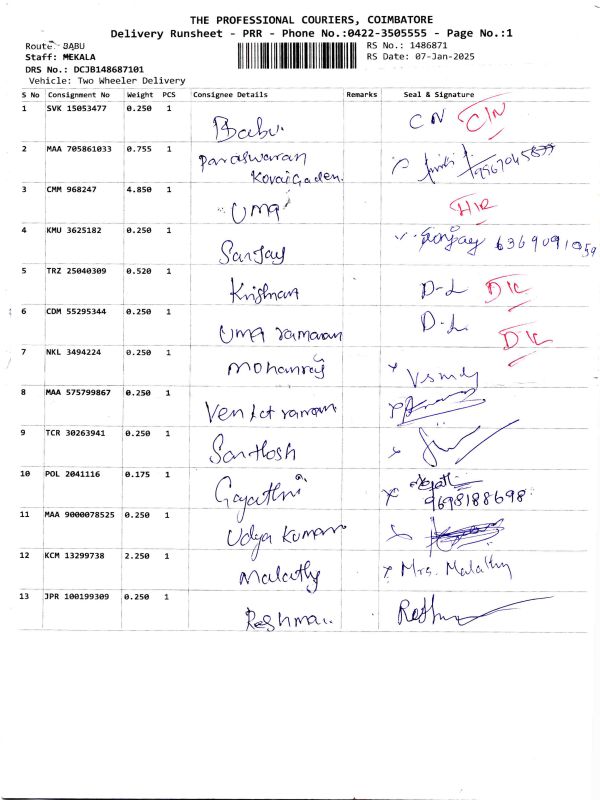 THE PROFESSIONAL COURIERS, COIMBATORE
Delivery Runsheet - PRR - Phone No.:0422-3505555 - Page No.:1
Route: BABU RS No.: 1486871
Staff: MEKALA RS Date: 07-Jan-2025
DRS No.: DCJB148687101
Vehicle: Two Wheeler Delivery
S No Consignment No Weight PCS Consignee Details Remarks Seal & Signature
1 SVK 15053477 0.250 1 Babu. CN C/N
2 MAA 705861033 0.755 1 Paraswaran
Kovai Gaden.
3 CMM 968247 4.850 1 UMA H/R
4 KMU 3625182 0.250 1 Sanjay Sanjay 6369091059
5 TRZ 25040309 0.520 1 Krishnan D-L D/L
6 CDM 55295344 0.250 1 UMA ramanan D-L. D/L
7 NKL 3494224 0.250 1 Mohanraj
8 MAA 575799867 0.250 1 Venkatraman
9 TCR 30263941 0.250 1 Santhosh
10 POL 2041116 0.175 1 Gayathri 9698188698
11 MAA 9000078525 0.250 1 Udya Kumar
12 KCM 13299738 2.250 1 Malathy Mrs. Malathy
13 JPR 100199309 0.250 1 Reshma..